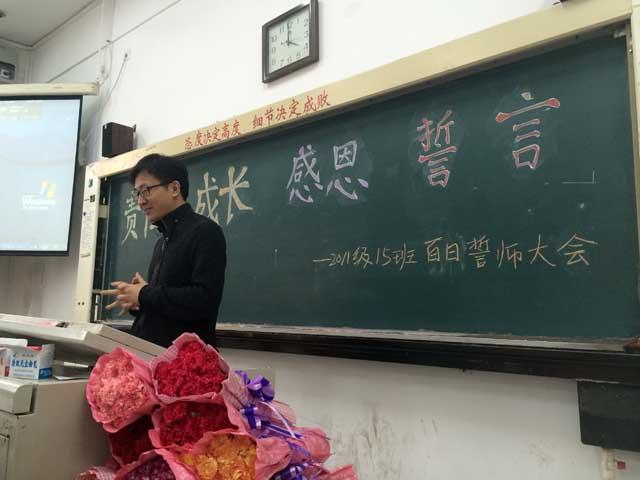 态度决定高度 细节决定成败
责 成长 感恩 誓言
—2011级15班百日誓师大会
Windows